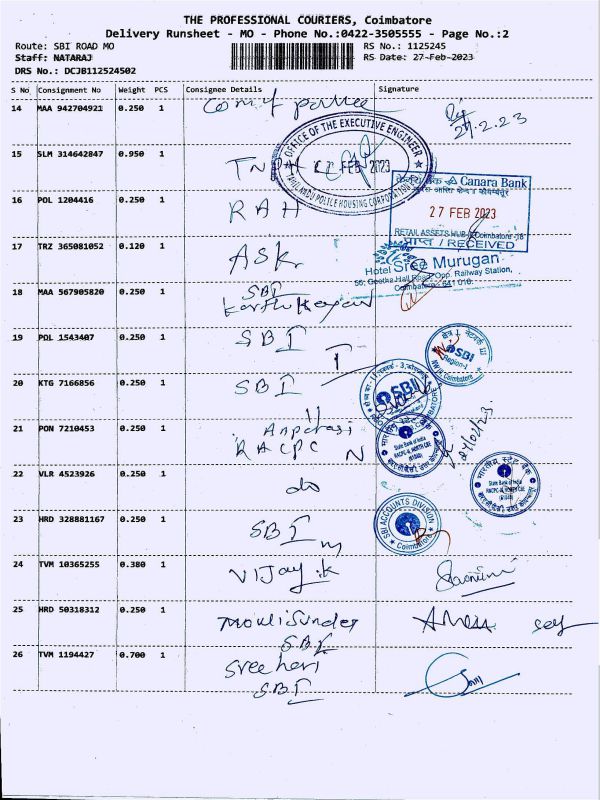 THE PROFESSIONAL COURIERS, Coimbatore
Delivery Runsheet - MO - Phone No.:0422-3505555 - Page No.:2
Route: SBI ROAD MO
RS No.: 1125245
Staff: NATARAJ
RS Date: 27-Feb-2023
DRS No.: DCJB112524502
S No Consignment No Weight PCS Consignee Details Signature
14 MAA 942704921 0.250 1
27.2.23
OFFICE OF THE EXECUTIVE ENGINEER
15 SLM 314642847 0.950 1 TNPH
FEB 2023
TAMIL NADU POLICE HOUSING CORPORATION
Canara Bank
16 POL 1204416 0.250 1 RAH
27 FEB 2023
RETAIL ASSETS HUB Coimbatore -18
प्राप्त / RECEIVED
17 TRZ 365081052 0.120 1 ASK
Hotel Sree Murugan
Opp. Railway Station,
Coimbatore - 641 018.
18 MAA 567905820 0.250 1 SBI
Karthikeyan
19 POL 1543407 0.250 1 SBI
SBI
Region-I
Coimbatore
20 KTG 7166856 0.250 1 SBI
SBI
21 PON 7210453 0.250 1
RACPC N
State Bank of India
27/02/23
22 VLR 4523926 0.250 1 do
भारतीय स्टेट बैंक
State Bank of India
23 HRD 328881167 0.250 1 SBI
SBI ACCOUNTS DIVISION
Coimbatore
24 TVM 10365255 0.380 1 Vijay.k
25 HRD 50318312 0.250 1 Moulisunder
SBI
26 TVM 1194427 0.700 1 Sreehari
SBI